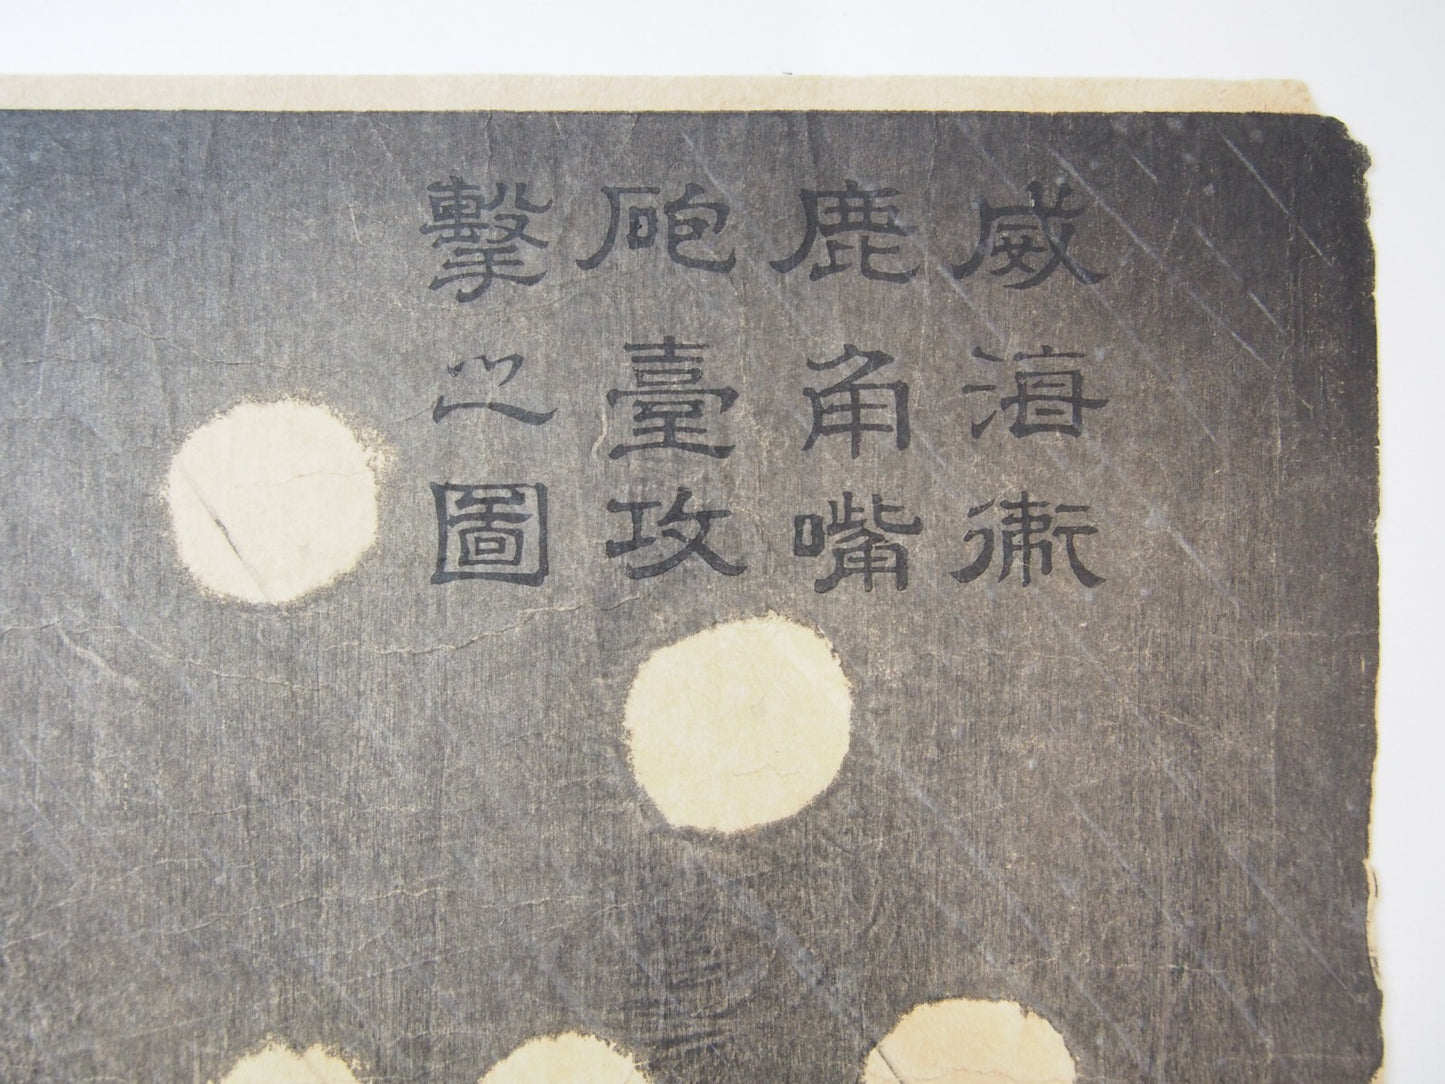 威海衞
鹿角嘴
砲臺攻
擊之圖